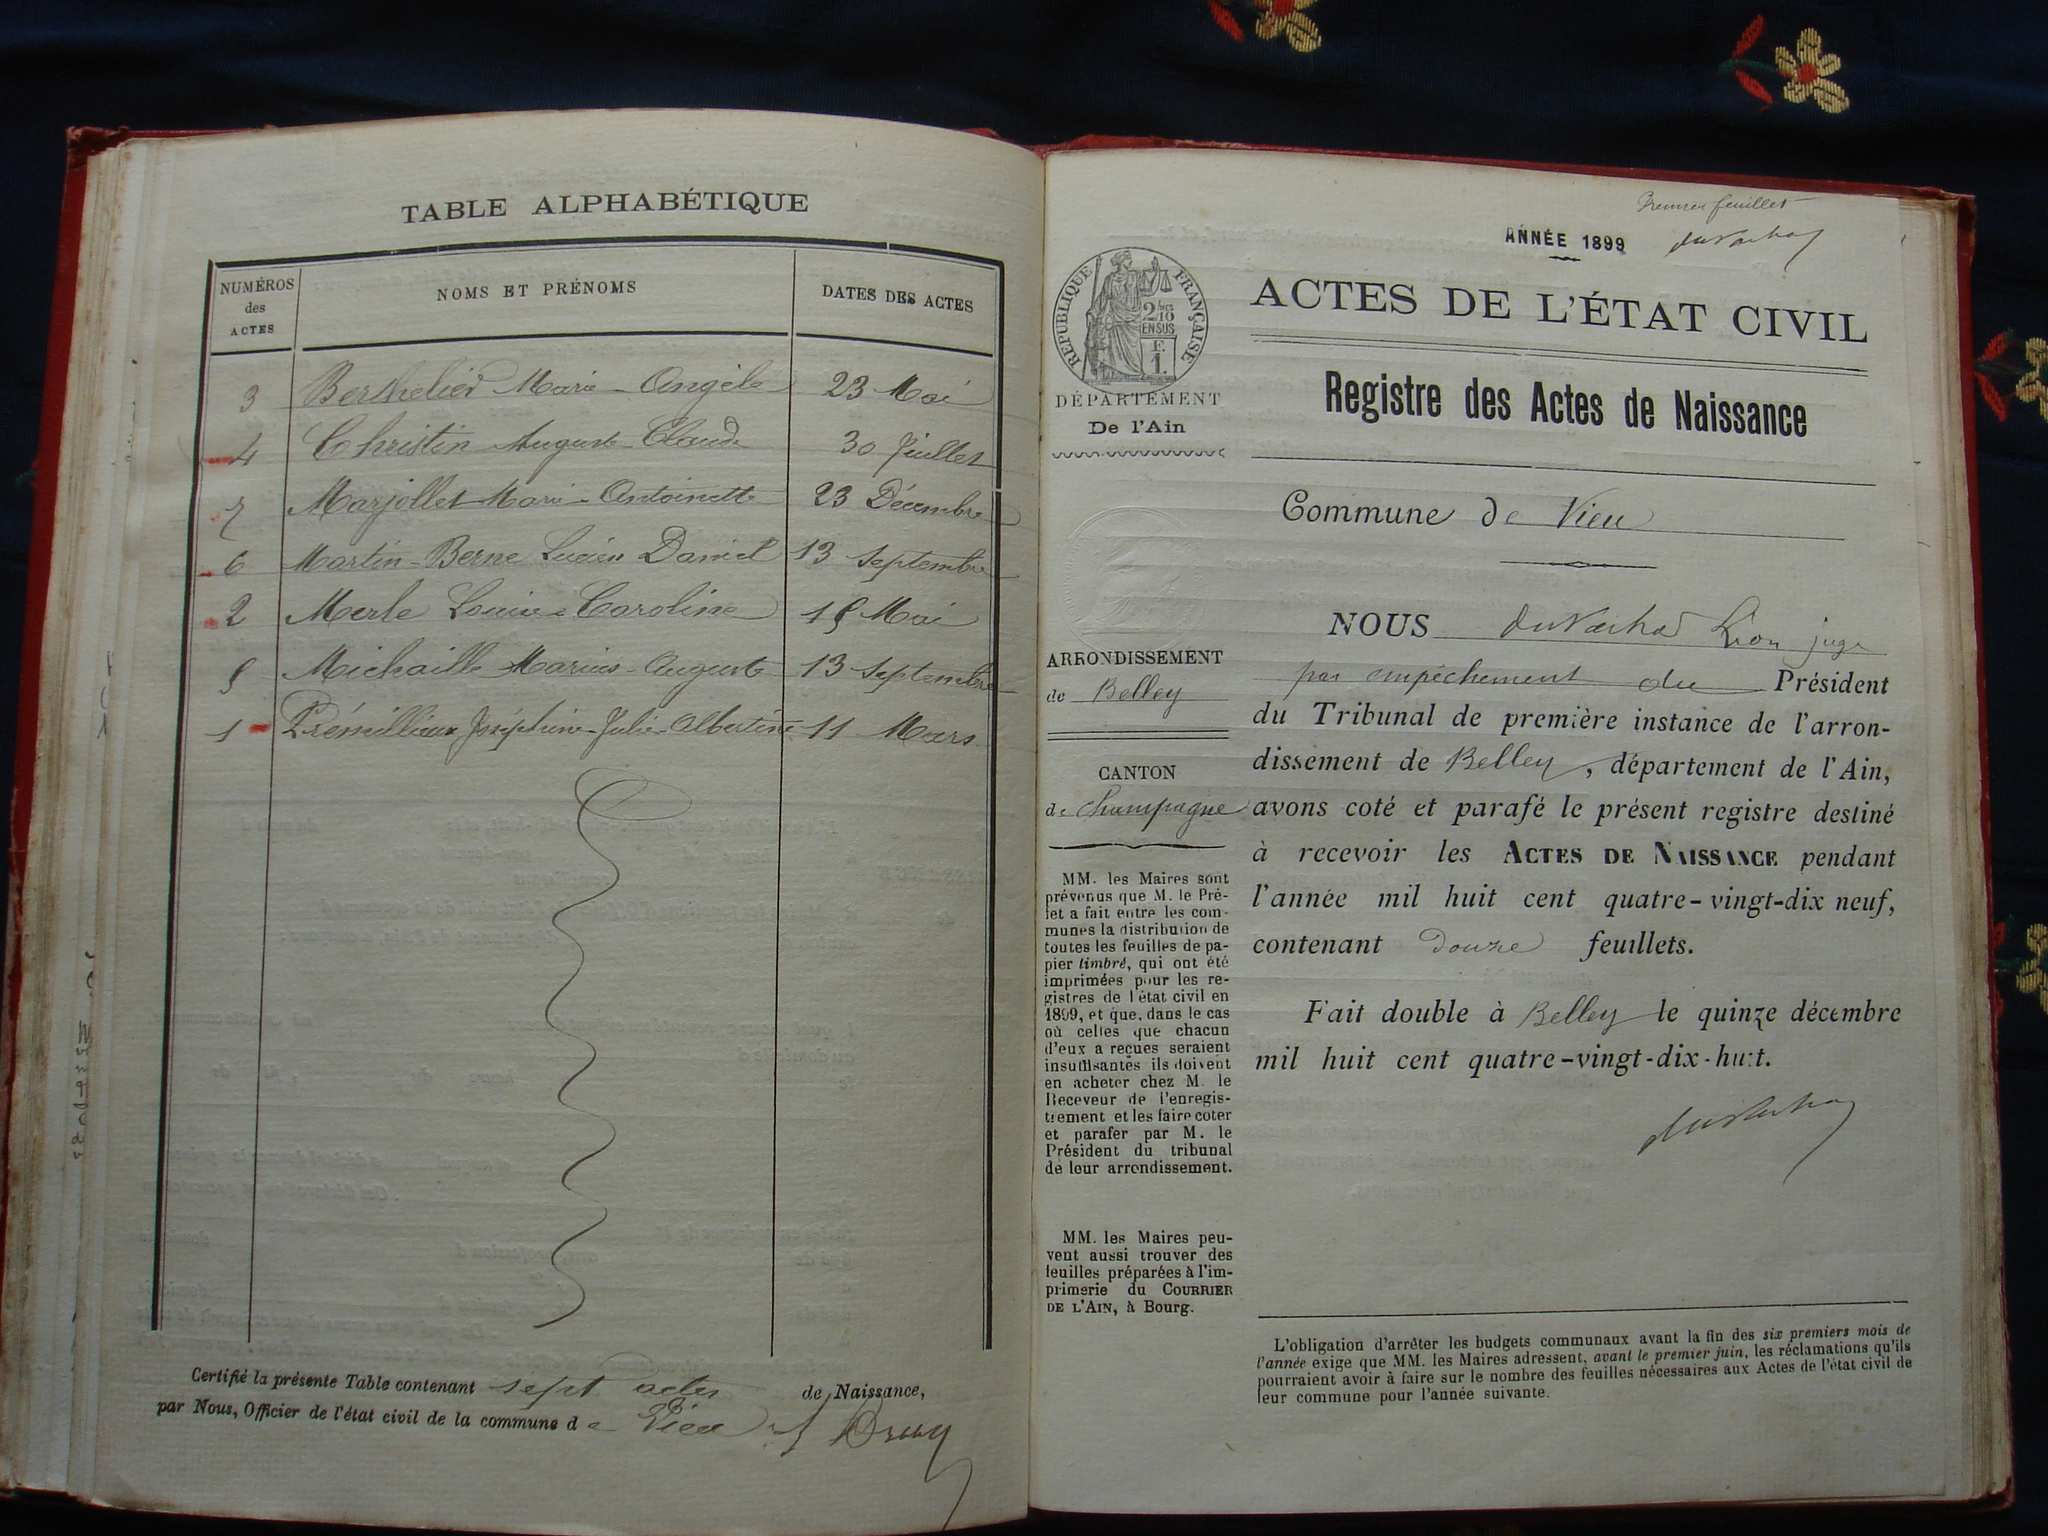 TABLE ALPHABÉTIQUE
NUMÉROS des ACTES NOMS ET PRÉNOMS DATES DES ACTES
3 Berthelier Marie-Angèle 23 Mai
4 Christin Auguste Claude 30 Juillet
7 Marjollet Marie-Antoinette 23 Décembre
6 Martin-Berne Lucien Daniel 13 Septembre
2 Merle Louise Caroline 15 Mai
5 Michaille Marius-Auguste 13 Septembre
1 Prémillieux Joséphine-Julie-Albertine 11 Mars
Certifié la présente Table contenant sept actes de Naissance,
par Nous, Officier de l'état civil de la commune de Vieu
Premier feuillet
ANNÉE 1899
RÉPUBLIQUE FRANÇAISE
2/10
EN SUS
F.
1.
DÉPARTEMENT
De l'Ain
ARRONDISSEMENT
de Belley
CANTON
de Champagne
MM. les Maires sont
prévenus que M. le Pré-
fet a fait entre les com-
munes la distribution de
toutes les feuilles de pa-
pier timbré, qui ont été
imprimées pour les re-
gistres de l'état civil en
1899, et que, dans le cas
où celles que chacun
d'eux a reçues seraient
insuffisantes ils doivent
en acheter chez M. le
Receveur de l'enregis-
trement et les faire coter
et parafer par M. le
Président du tribunal
de leur arrondissement.
MM. les Maires peu-
vent aussi trouver des
feuilles préparées à l'im-
primerie du COURRIER
DE L'AIN, à Bourg.
ACTES DE L'ÉTAT CIVIL
Registre des Actes de Naissance
Commune de Vieu
NOUS Léon juge
par empêchement du Président
du Tribunal de première instance de l'arron-
dissement de Belley, département de l'Ain,
avons coté et parafé le présent registre destiné
à recevoir les ACTES DE NAISSANCE pendant
l'année mil huit cent quatre-vingt-dix neuf,
contenant douze feuillets.
Fait double à Belley le quinze décembre
mil huit cent quatre-vingt-dix-huit.
L'obligation d'arrêter les budgets communaux avant la fin des six premiers mois de
l'année exige que MM. les Maires adressent, avant le premier juin, les réclamations qu'ils
pourraient avoir à faire sur le nombre des feuilles nécessaires aux Actes de l'état civil de
leur commune pour l'année suivante.